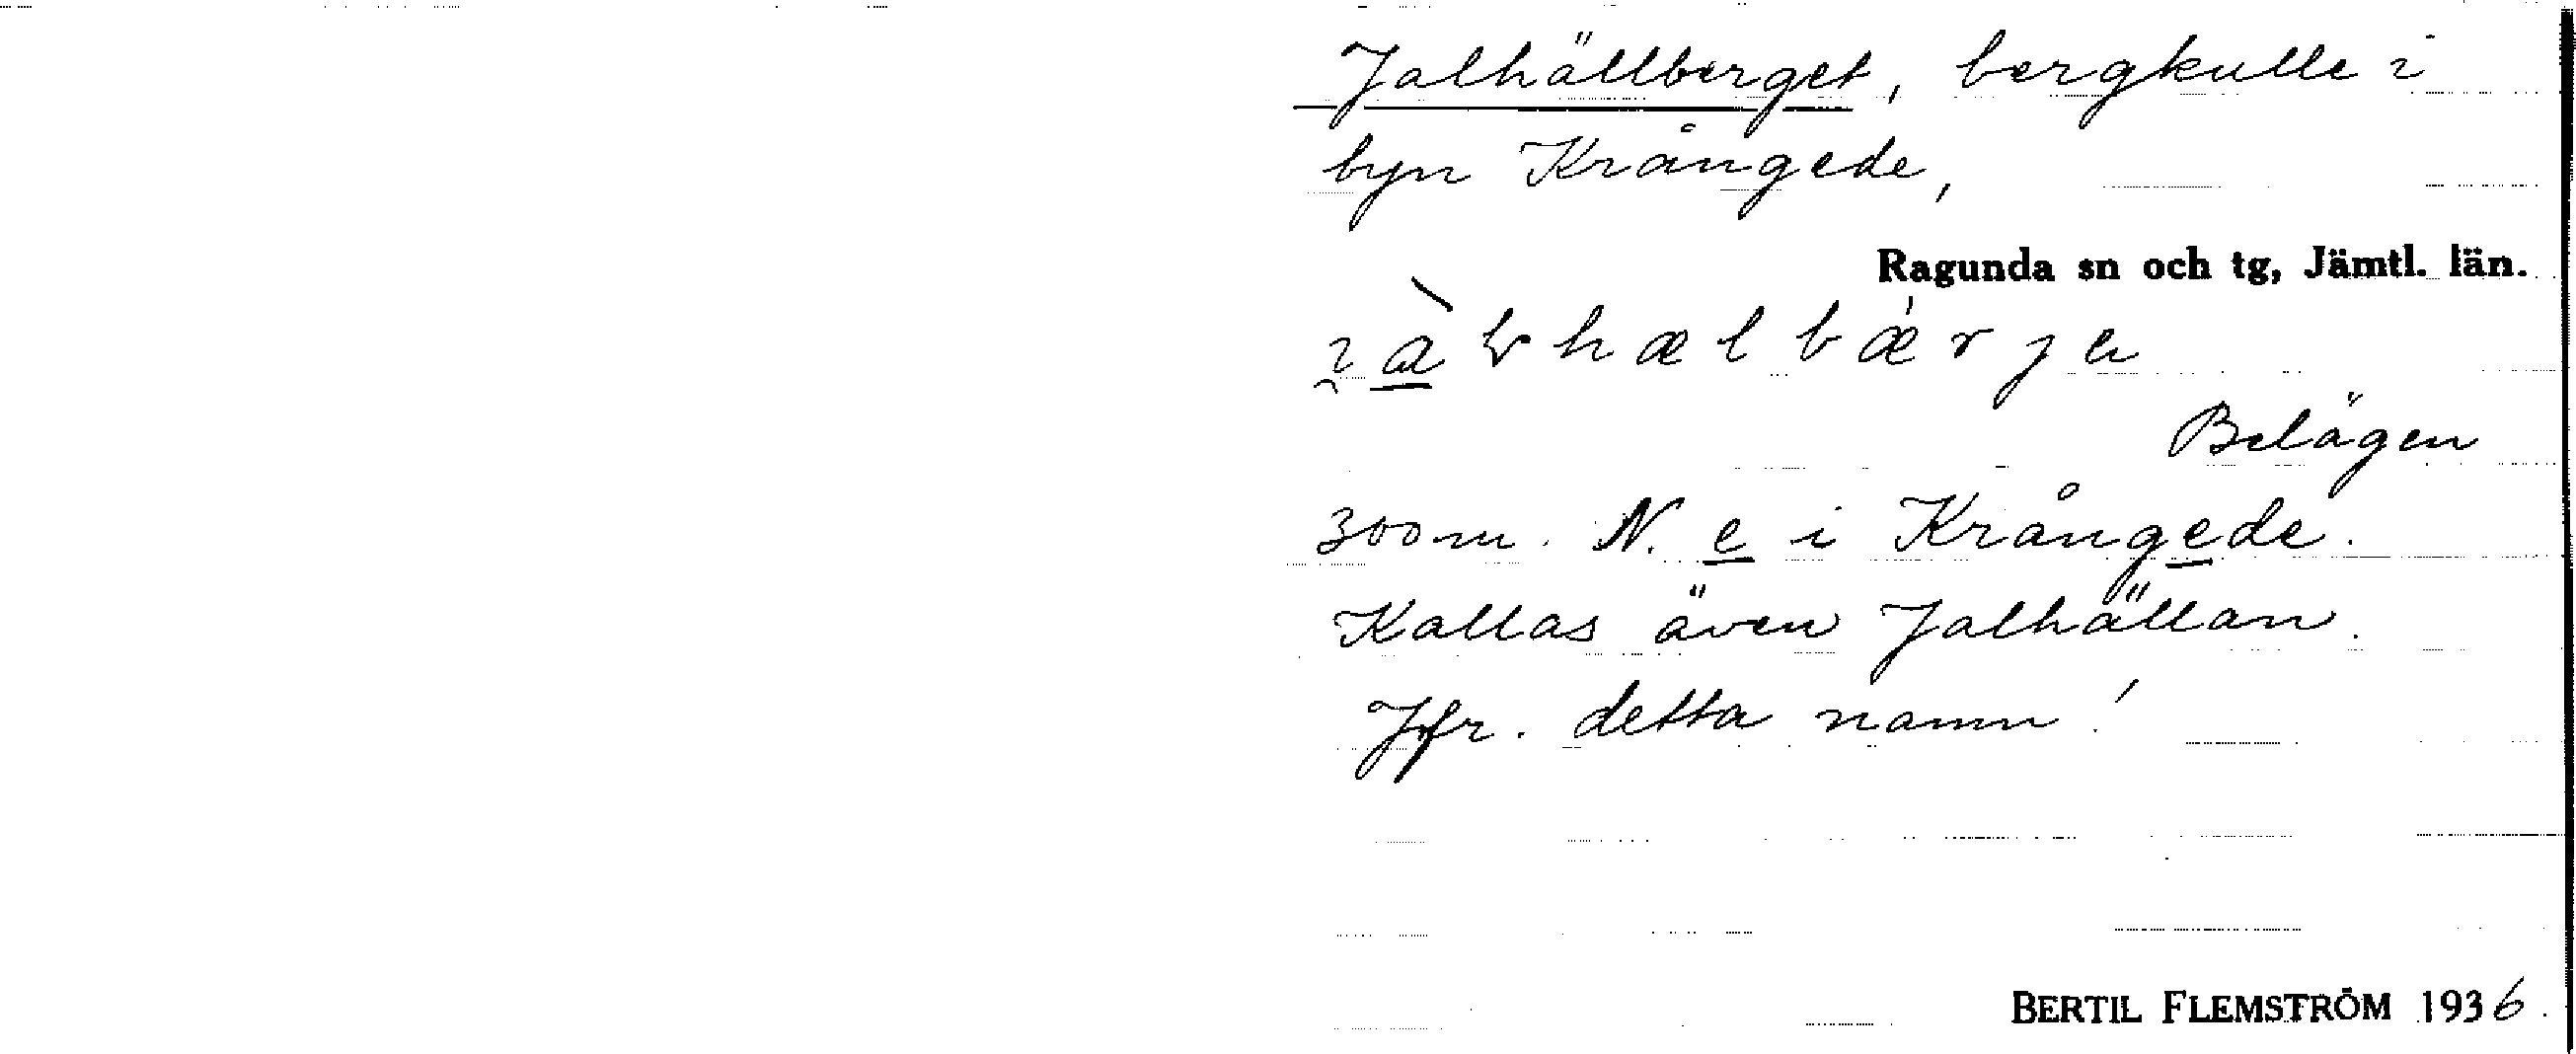 Jalhällberget, bergkulle i
byn Krångede,
Ragunda sn och tg, Jämtl. län.
Belägen
300 m. N. e i Krångede.
Kallas även Jalhällan.
Jfr. detta namn!
BERTIL FLEMSTRÖM 1936.